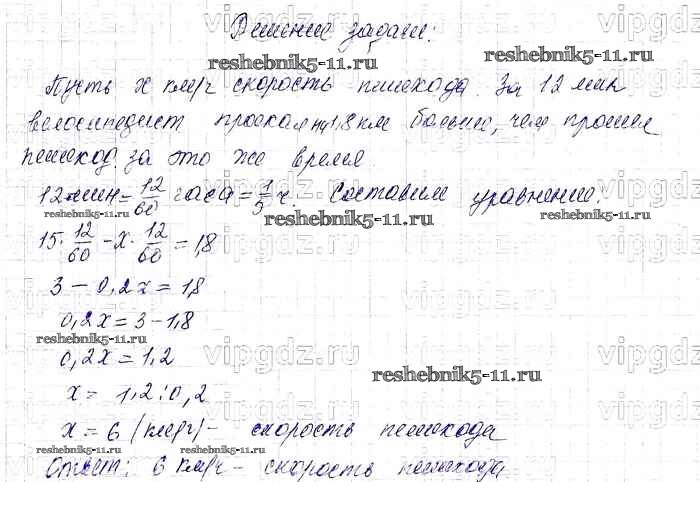 Решение задачи:
vipgdz.ru
reshebnik5-11.ru
reshebnik5-11.ru
Пусть x км/ч скорость пешехода. За 12 мин
велосипедист проехал на 1,8 км больше, чем прошел
пешеход за это же время
12 мин = 12/60 часа = 1/5 ч. Составим уравнение:
reshebnik5-11.ru
reshebnik5-11.ru
reshebnik5-11.ru
15 · 12/60 - x · 12/60 = 1,8
vipgdz.ru
3 - 0,2x = 1,8
0,2x = 3 - 1,8
reshebnik5-11.ru
0,2x = 1,2
vipgdz.ru
vipgdz.ru
reshebnik5-11.ru
x = 1,2 : 0,2
x = 6 (км/ч) - скорость пешехода
reshebnik5-11.ru
reshebnik5-11.ru
Ответ: 6 км/ч - скорость пешехода